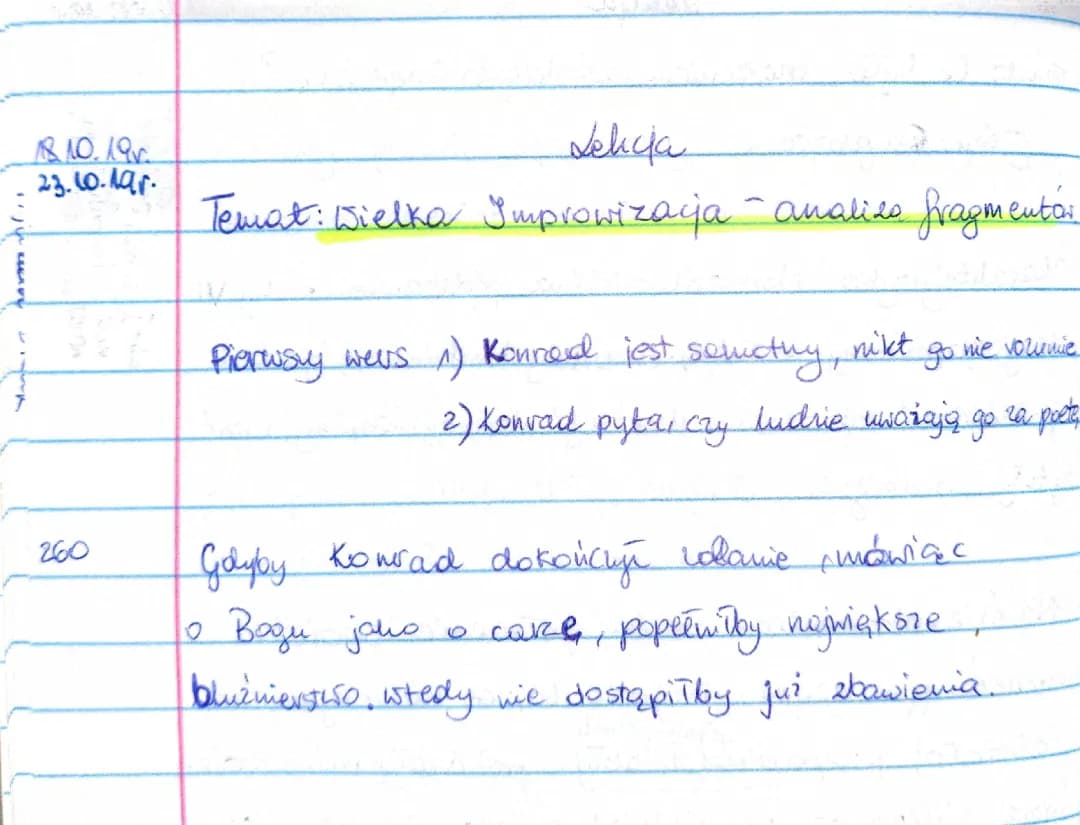 18.10.19r.
Lekcja
23.10.19r.
Temat: Wielka Improwizacja - analiza fragmentów
Pierwszy wers 1) Konrad jest samotny, nikt go nie rozumie
2) Konrad pyta, czy ludzie uważają go za poetę
260
Gdyby Konrad dokończył zdanie, mówiąc
o Bogu jako o carze, popełniłby największe
bluźnierstwo. wtedy nie dostąpiłby już zbawienia.